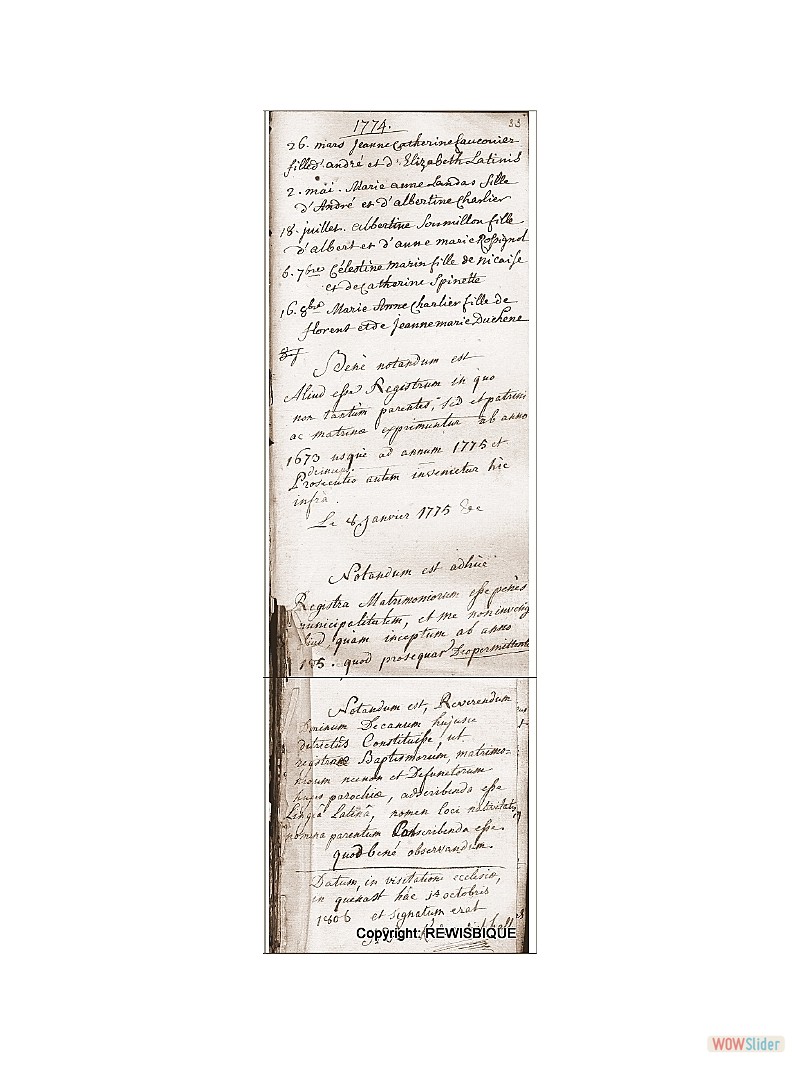 1774.
33
26. mars Jeanne Catherine Fauconier
fille d'andré et d'Elizabeth Latinis
2. mai. Marie anne Landas fille
d'André et d'albertine Charlier
18. juillet. albertine Soumillon fille
d'albert et d'anne marie Rossignol
6. 7bre Célestine marin fille de nicaise
et de Catherine Spinette
16. 8bre Marie Anne Charlier fille de
florent et de jeanne marie Duchene
Benè notandum est
Aliud esse Registrum in quo
non tantùm parentes, sed et patrini
ac matrinæ exprimuntur ab anno
1673 usque ad annum 1775 et
denuo
Prosecutio autem invenietur hic
infrà.
Le 8 janvier 1775 &c
Notandum est adhuc
Registra Matrimoniorum esse penès
municipalitatem, et me non
quàm inceptum ab anno
quod prosequar Deo permittente
Notandum est, Reverendum
Dominum Decanum hujusce
districtûs Constituisse, ut
registra Baptismorum, matrimo-
niorum necnon et Defunctorum
hujus parochiæ, adscribenda esse
Linguâ Latinâ, nomen loci nativitatis,
nomina parentum Conscribenda esse.
quod benè observandum.
Datum, in visitatione ecclesiæ,
in quenast hâc 1a octobris
1806 et signatum erat
Copyright: REWISBIQUE
WOWSlider